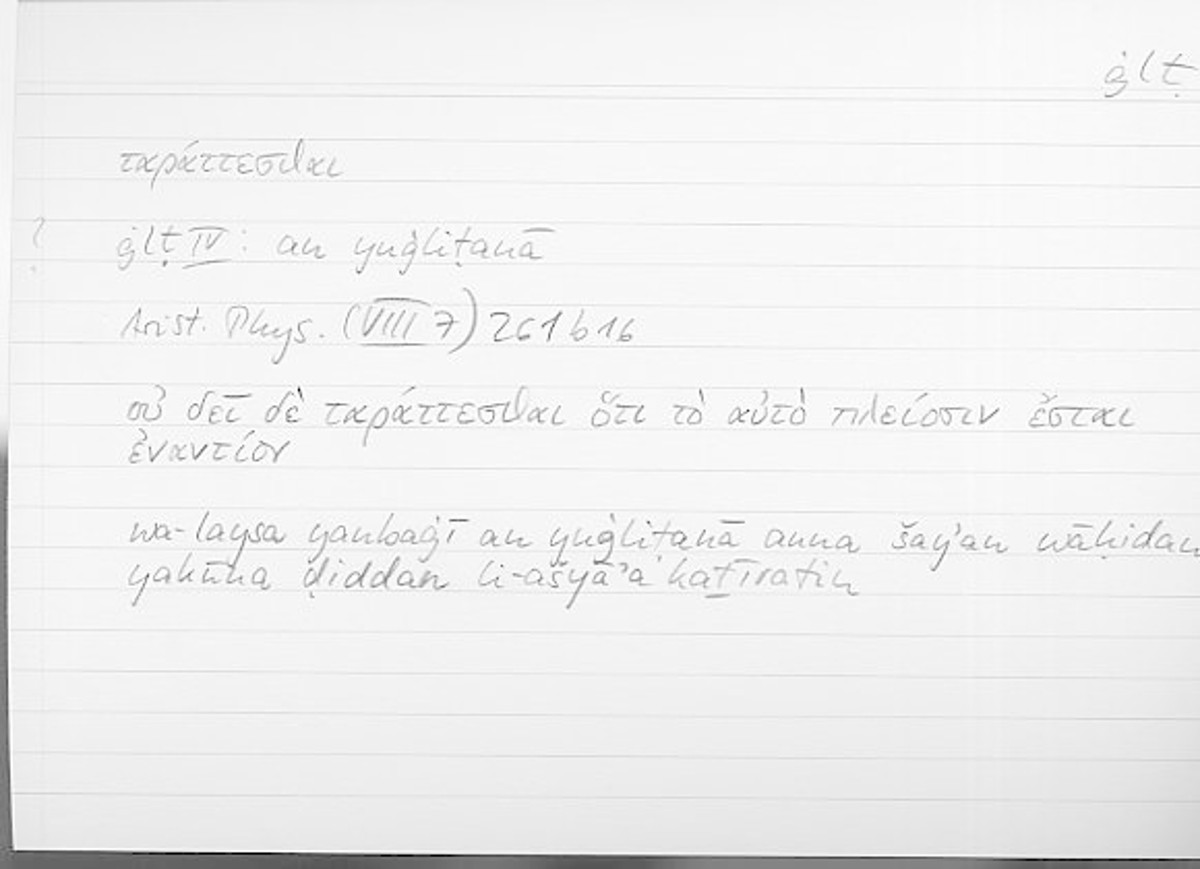 ġlṭ
ταράττεσθαι
?
ġlṭ IV: an yuġliṭanā
Arist. Phys. (VIII 7) 261 b 16
οὐ δεῖ δὲ ταράττεσθαι ὅτι τὸ αὐτὸ πλείοσιν ἔσται
ἐναντίον
wa-laysa yanbaġī an yuġliṭanā anna šay'an wāḥidan
yakūna ḍiddan li-ašyā'a kaṯīratin